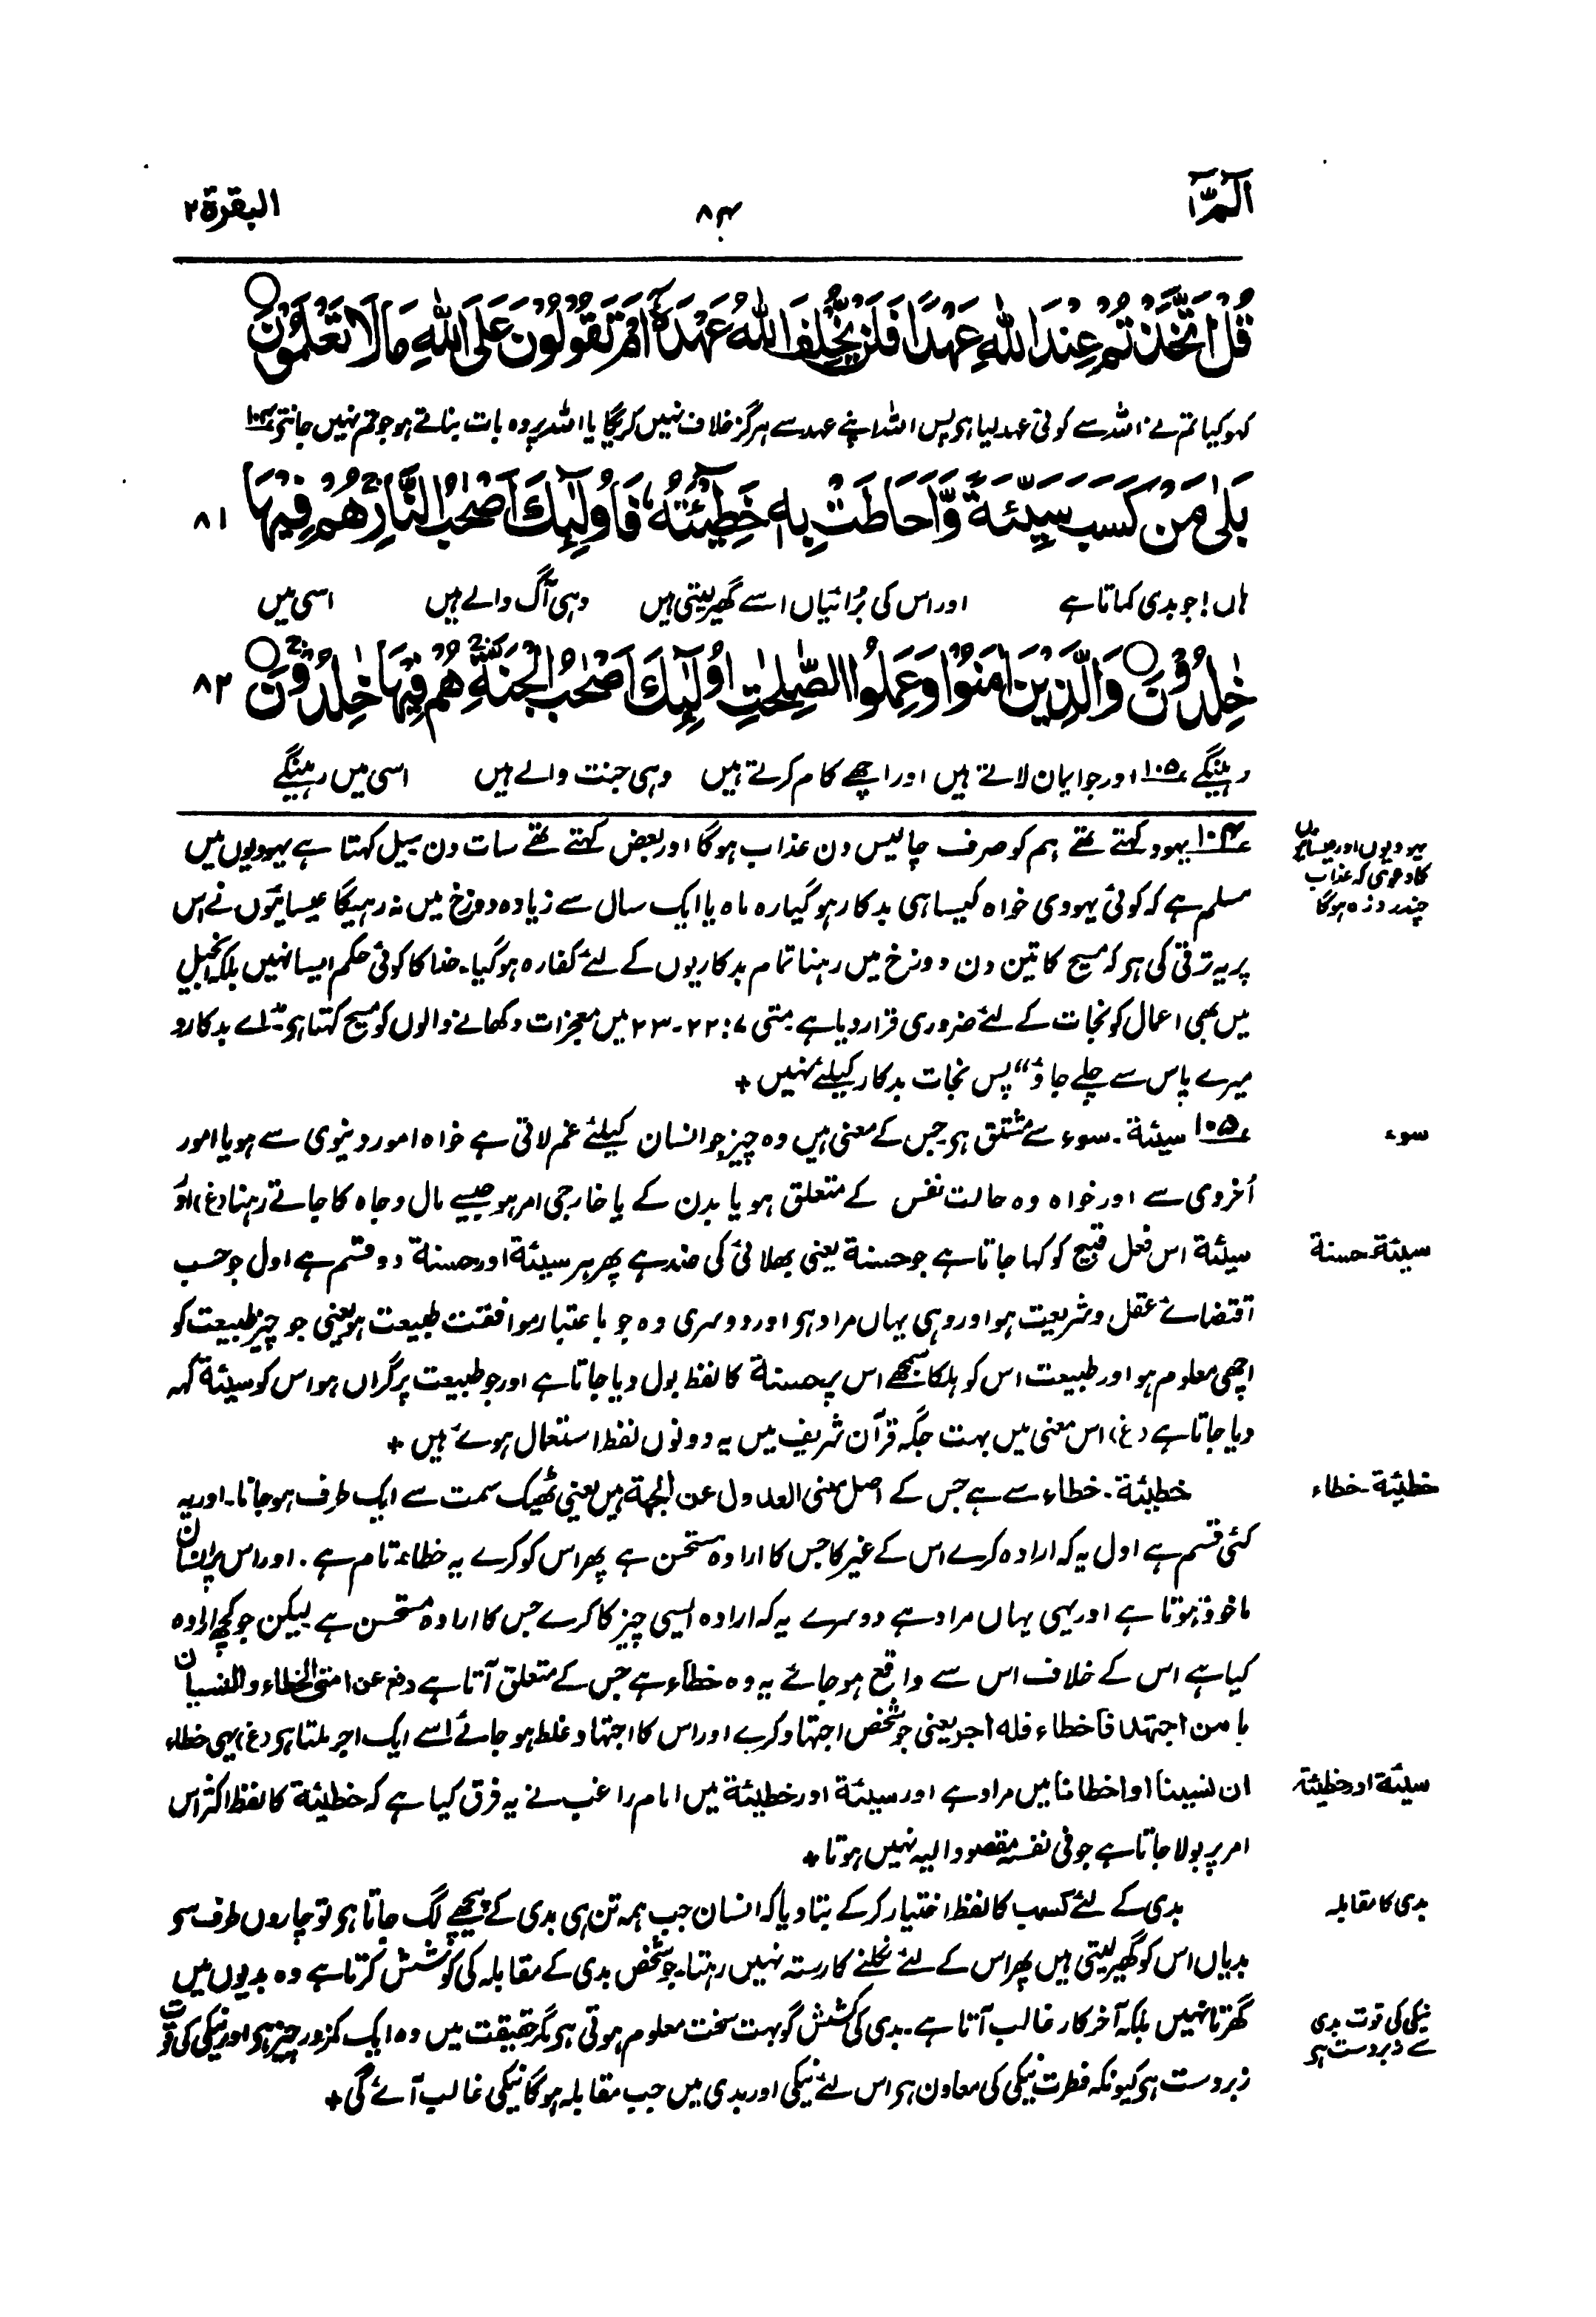 الٓمّٓ ۱
۸۴
البقرة ۲
قُلْ اَتَّخَذْتُمْ عِنْدَ اللّٰهِ عَهْدًا فَلَنْ يُّخْلِفَ اللّٰهُ عَهْدَهٗٓ اَمْ تَقُوْلُوْنَ عَلَى اللّٰهِ مَا لَا تَعْلَمُوْنَ ○
کہو کیا تم نے اللہ سے کوئی عہد لیا ہی پس اللہ اپنے عہد سے ہرگز خلاف نہیں کریگا یا اللہ پر وہ بات بناتے ہو جو تم نہیں جانتے ۱۰۴
بَلٰى مَنْ كَسَبَ سَيِّئَةً وَّاَحَاطَتْ بِهٖ خَطِيْٓـَٔتُهٗ فَاُولٰٓئِكَ اَصْحٰبُ النَّارِ هُمْ فِيْهَا ۸۱
ہاں! جو بدی کماتا ہے اور اس کی بُرائیاں اسے گھیر لیتی ہیں وہی آگ والے ہیں اسی میں
خٰلِدُوْنَ ○ وَالَّذِيْنَ اٰمَنُوْا وَعَمِلُوا الصّٰلِحٰتِ اُولٰٓئِكَ اَصْحٰبُ الْجَنَّةِ هُمْ فِيْهَا خٰلِدُوْنَ ○ ۸۲
رہینگے ۱۰۵ اور جو ایمان لاتے ہیں اور اچھے کام کرتے ہیں وہی جنت والے ہیں اسی میں رہینگے
یہودیوں اور عیسائیوں
کا دعویٰ کہ عذاب
چند روزہ ہوگا
۱۰۴ یہود کہتے تھے ہم کو صرف چالیس دن عذاب ہوگا اور بعض کہتے تھے سات دن سیل کہتا ہے یہودیوں میں
مسلم ہے کہ کوئی یہودی خواہ کیسا ہی بدکار ہو گیارہ ماہ یا ایک سال سے زیادہ دوزخ میں نہ رہیگا عیسائیوں نے اس
پر یہ ترقی کی ہی کہ مسیح کا تین دن دوزخ میں رہنا تمام بدکاریوں کے لئے کفارہ ہوگیا۔ خدا کا کوئی حکم ایسا نہیں بلکہ انجیل
میں بھی اعمال کو نجات کے لئے ضروری قرار دیا ہے متی ۷: ۲۲-۲۳ میں معجزات دکھانے والوں کو مسیح کہتا ہی "اے بدکارو
میرے پاس سے چلے جاؤ" پس نجات بدکار کیلئے نہیں +
سوء
۱۰۵ سيئة۔ سوء سے مشتق ہی جس کے معنی ہیں وہ چیز جو انسان کیلئے غم لاتی ہے خواہ امور دنیوی سے ہو یا امور
اُخروی سے اور خواہ وہ حالت نفس کے متعلق ہو یا بدن کے یا خارجی امر ہو جیسے مال و جاہ کا جاتے رہنا (غ) اور
سيئة۔ حسنة
سيئة اس فعل قبیح کو کہا جاتا ہے جو حسنة یعنی بھلائی کی ضد ہے پھر ہر سيئة اور حسنة دو قسم ہے اول جو حسب
اقتضائے عقل و شریعت ہو اور وہی یہاں مراد ہی اور دوسری وہ جو باعتبار موافقت طبیعت ہو یعنی جو چیز طبیعت کو
اچھی معلوم ہو اور طبیعت اس کو ہلکا سمجھے اس پر حسنة کا لفظ بول دیا جاتا ہے اور جو طبیعت پر گراں ہو اس کو سيئة کہہ
دیا جاتا ہے (غ) اس معنی میں بہت جگہ قرآن شریف میں یہ دونوں لفظ استعمال ہوئے ہیں +
خطيئة۔ خطاء
خطيئة۔ خطاء سے ہے جس کے اصل معنی العدول عن الجهة ہیں یعنی ٹھیک سمت سے ایک طرف ہو جانا۔ اور یہ
کئی قسم ہے اول یہ کہ ارادہ کرے اس کے غیر کا جس کا ارادہ مستحسن ہے پھر اس کو کرے یہ خطاء تام ہے۔ اور اس پر انسان
ماخوذ ہوتا ہے اور یہی یہاں مراد ہے دوسرے یہ کہ ارادہ ایسی چیز کا کرے جس کا ارادہ مستحسن ہے لیکن جو کچھ ارادہ
کیا ہے اس کے خلاف اس سے واقع ہو جائے یہ وہ خطاء ہے جس کے متعلق آتا ہے رفع عن امتی الخطاء والنسیان
یا من اجتهد فاخطاء فله اجر یعنی جو شخص اجتہاد کرے اور اس کا اجتہاد غلط ہو جائے اسے ایک اجر ملتا ہی (غ) یہی خطاء
سيئة اور خطيئة
ان نسینا او اخطانا میں مراد ہے اور سيئة اور خطيئة میں امام راغب نے یہ فرق کیا ہے کہ خطيئة کا لفظ اکثر اس
امر پر بولا جاتا ہے جو فی نفسہ مقصود الیہ نہیں ہوتا +
بدی کا مقابلہ
بدی کے لئے کسب کا لفظ اختیار کرکے بتا دیا کہ انسان جب ہمہ تن ہی بدی کے پیچھے لگ جاتا ہی تو چاروں طرف سی
بدیاں اس کو گھیر لیتی ہیں پھر اس کے لئے نکلنے کا رستہ نہیں رہتا۔ جو شخص بدی کے مقابلہ کی کوشش کرتا ہے وہ بدیوں میں
نیکی کی قوت بدی
سے زبردست ہی
گھرتا نہیں بلکہ آخر کار غالب آتا ہے۔ بدی کی کشش گو بہت سخت معلوم ہوتی ہی مگر حقیقت میں وہ ایک کمزور چیز ہی اور نیکی کی قوت
زبردست ہی کیونکہ فطرت نیکی کی معاون ہی اس لئے نیکی اور بدی میں جب مقابلہ ہوگا نیکی غالب آئے گی +